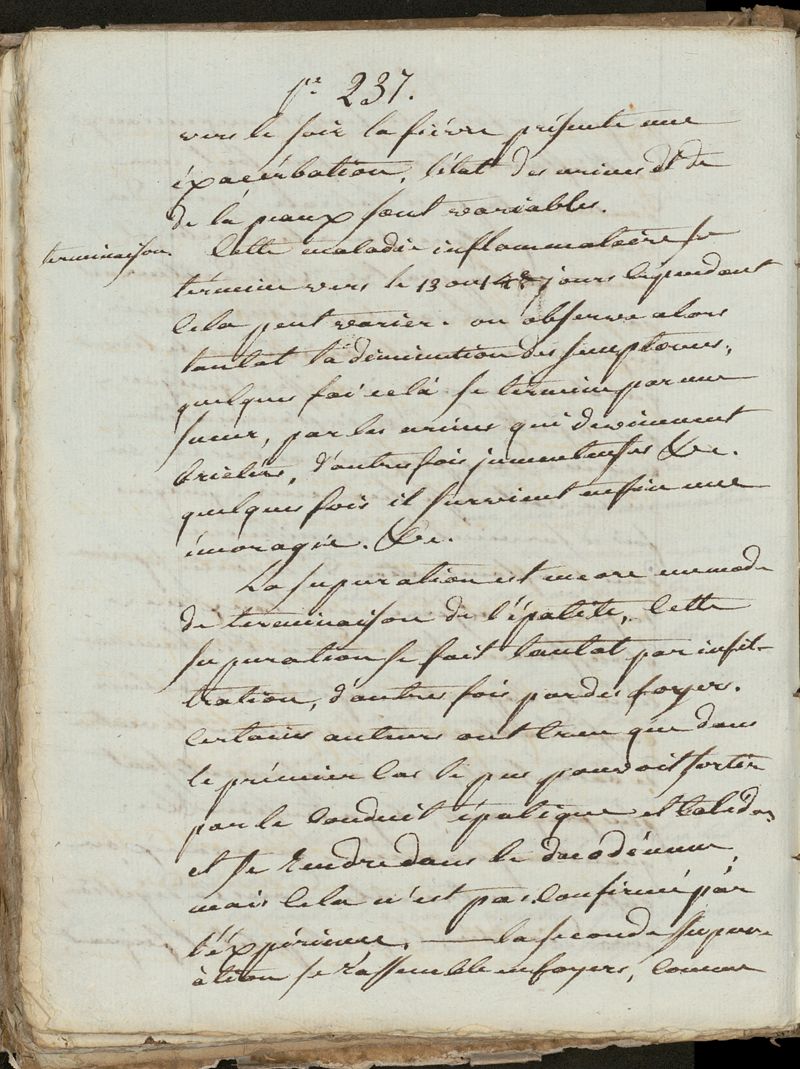 pe 237.
vers le soir la fièvre présente une
éxacérbation, l'état des urines et de
de la peaux sont variables.
terminaison. Cette maladie inflammatoire se
términe vers le 13 ou 14e jours cependant
cela peut varier. on observe alors
tantot la diminution des simptomes,
quelques foi cela se termine par une
sueur, par les urines qui deviennent
, d'autres fois jumenteuses &c.
quelques fois il survient enfin une
émoragie. &c.
La supuration est encore un mode
de terminaison de l'épatite, cette
supuration se fait tantot par infil-
tration, d'autres fois par des foyers.
certains auteurs ont creu que dans
le prémier cas le pus pouvoit sortir
par le conduit épatique et colédo
et se rendre dans le duodénum,
mais cela n'est pas confirmé par
l'éxpérience. — la seconde supur
ation se rassemble en foyers, comme